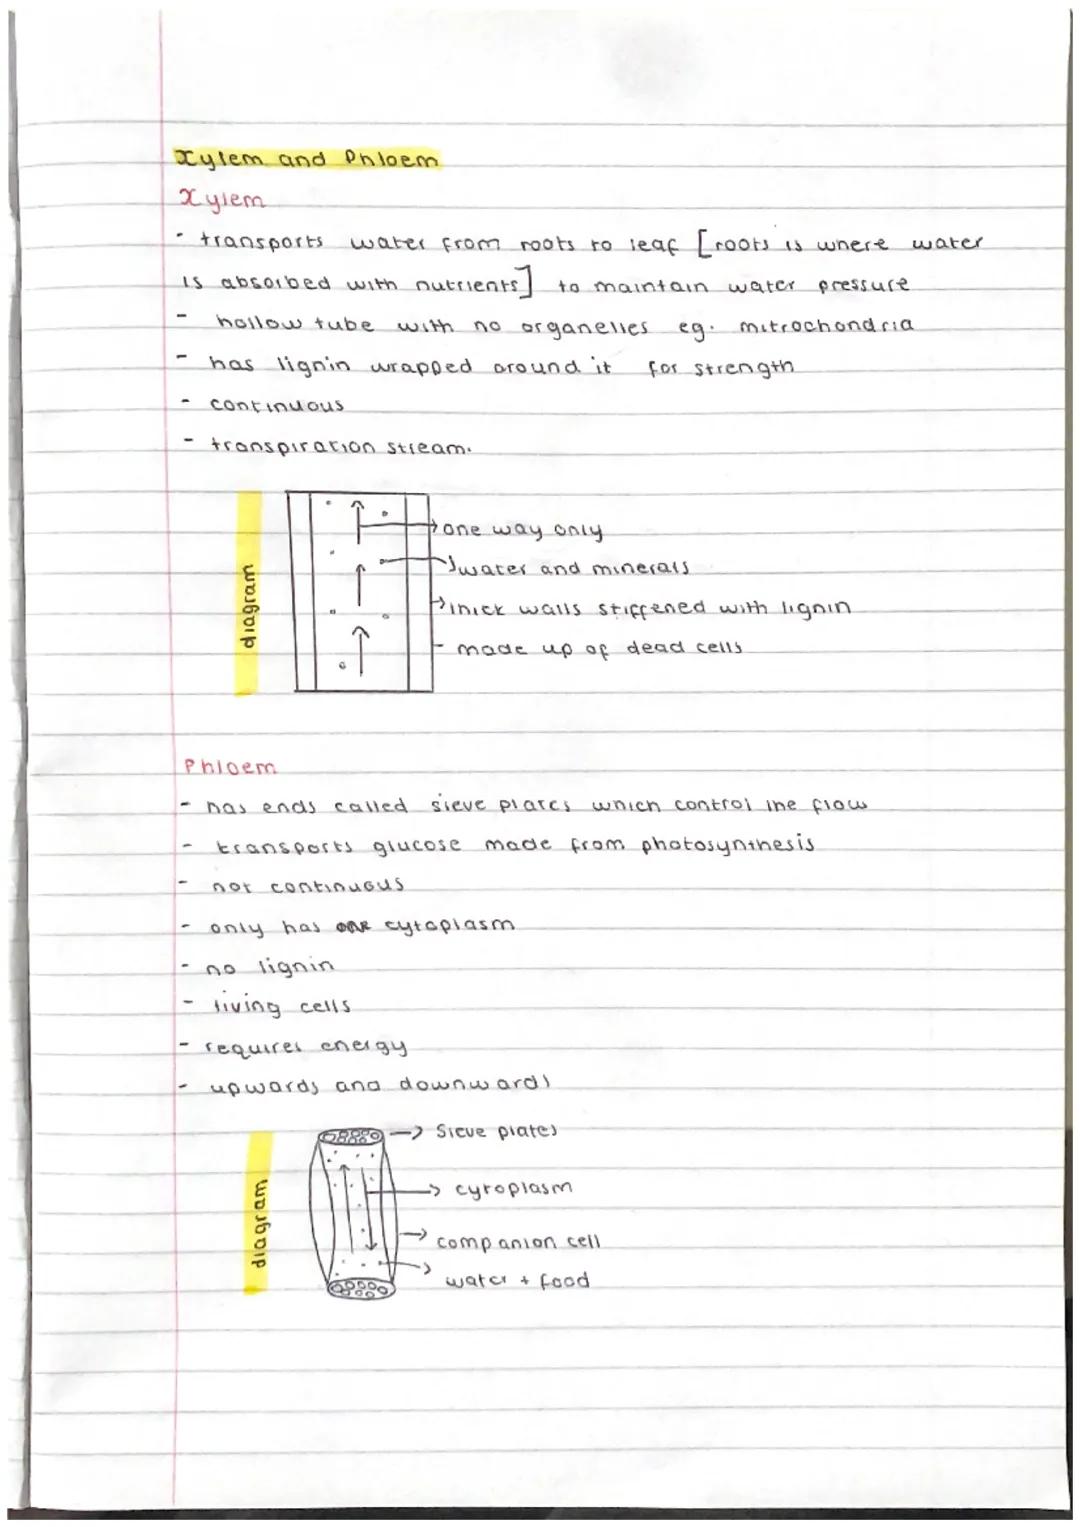 Xylem and Phloem
Xylem
- transports water from roots to leaf [roots is where water
is absorbed with nutrients] to maintain water pressure
- hollow tube with no organelles eg. mitrochondria
- has lignin wrapped around it for strength
- continuous
- transpiration stream.
diagram
one way only
water and minerals
thick walls stiffened with lignin
- made up of dead cells
Phloem
- has ends called sieve plates which control the flow
- transports glucose made from photosynthesis
- not continuous
- only has cytoplasm
- no lignin
- living cells
- requires energy
- upwards and downwards
diagram
Sieve plates
cytoplasm
companion cell
water + food